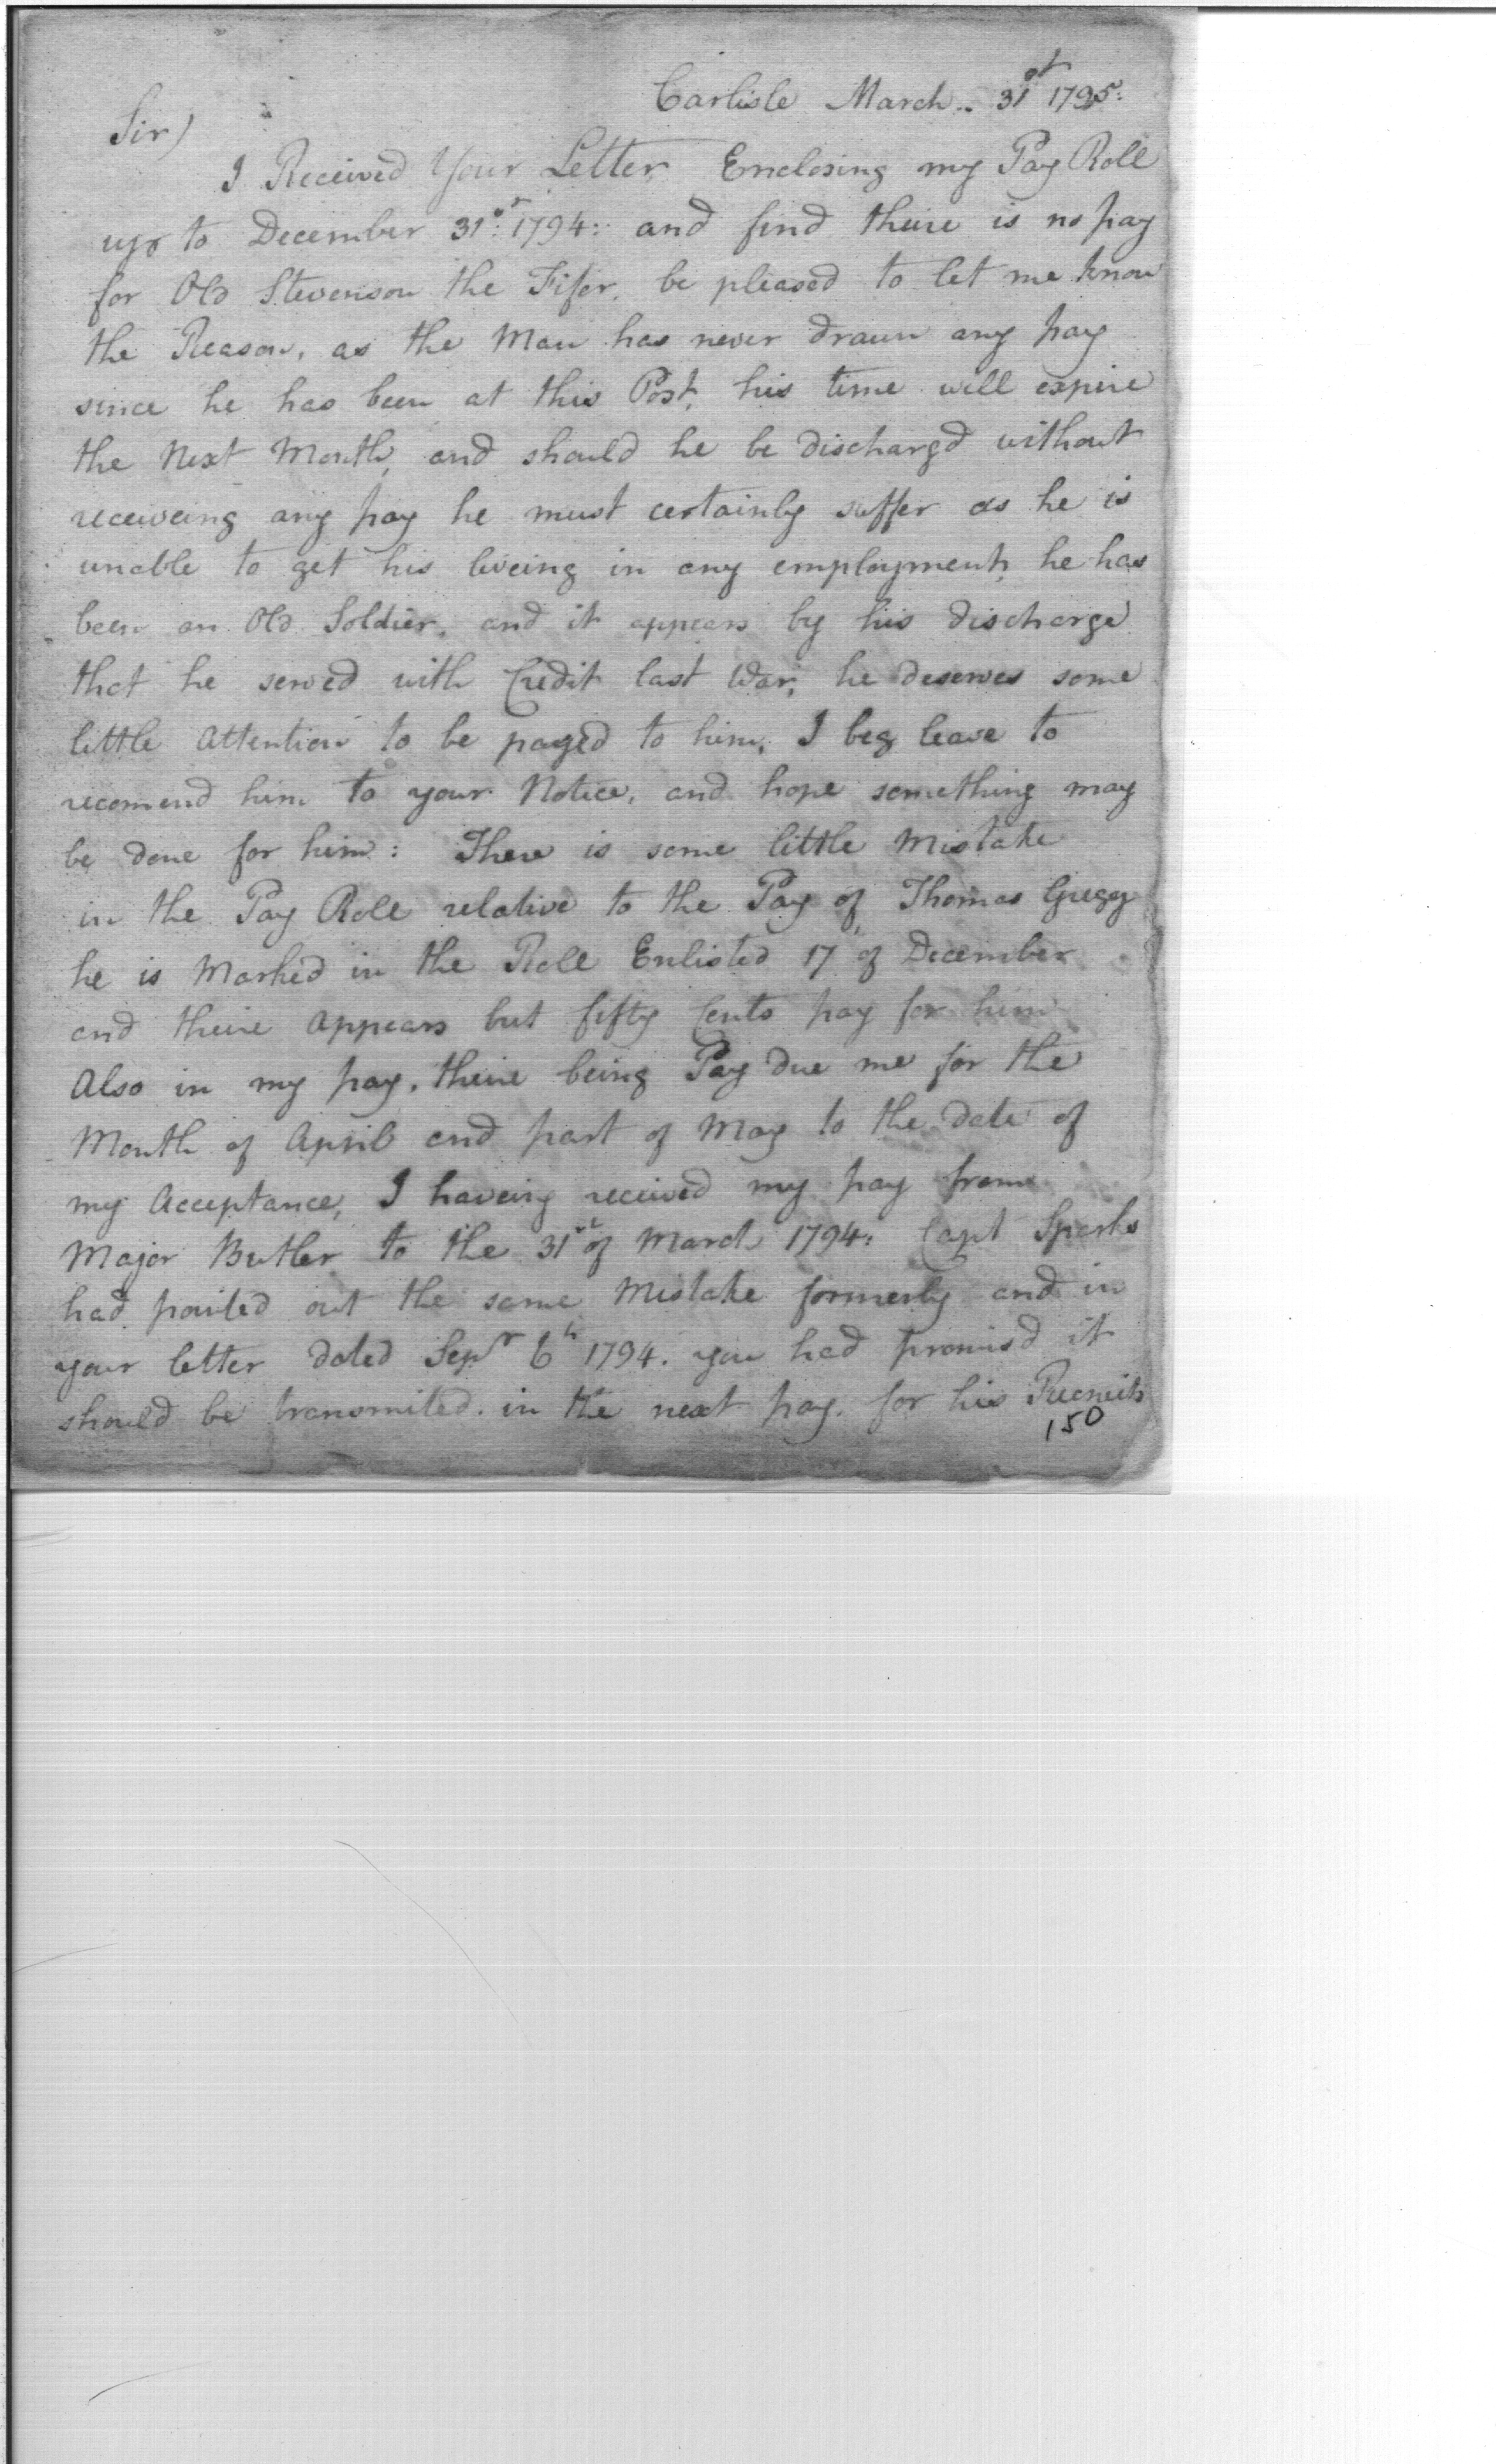 Carlisle March .. 31st 1795:
Sir)
I Received Your Letter Enclosing my Pay Roll
up to December 31st: 1794: and find theire is no pay
for Old Stevenson the Fifer, be pleased to let me know
the Reason, as the Man has never drawn any pay
since he has been at this Post, his time will expire
the Next Month, and should he be dischargd without
receiveing any pay he must certainly suffer as he is
unable to get his liveing in any employment, he has
been an Old Soldier, and it appears by his discharge
that he served with Credit last War, he deserves some
little Attention to be payed to him, I beg leave to
recomend him to your Notice, and hope something may
be done for him: There is some little Mistake
in the Pay Roll relative to the Pay of Thomas Gregg
he is Marked in the Roll Enlisted 17th of December
and theire Appears but fifty Cents pay for him
Also in my pay, theire being Pay due me for the
Month of April and part of May to the date of
my Acceptance, I haveing received my pay from
Major Butler to the 31st of March 1794: Capt Sparks
had pointed out the same Mistake formerly and in
your letter dated Sepr 6th 1794. you had promisd it
should be transmited. in the next pay. for his Recruits
150